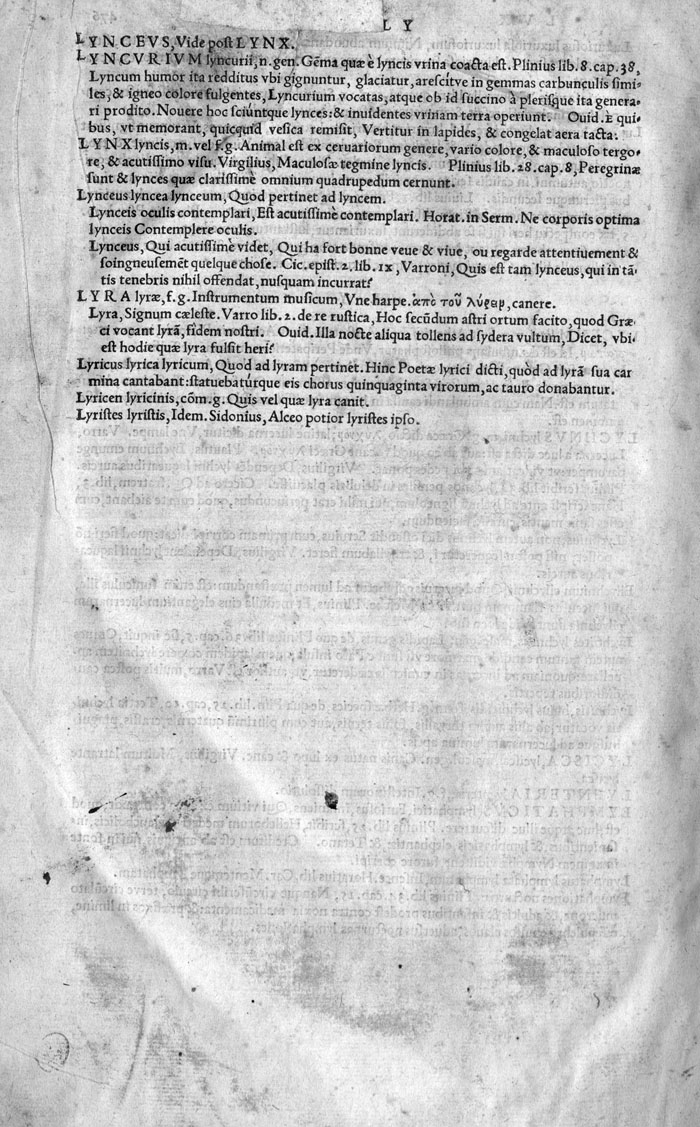 L Y
LYNCEVS, Vide post LYNX.
LYNCVRIVM lyncurii, n. gen. Gẽma quæ è lyncis vrina coacta est. Plinius lib. 8. cap. 38,
Lyncum humor ita redditus vbi gignuntur, glaciatur, arescitve in gemmas carbunculis simi-
les, & igneo colore fulgentes, Lyncurium vocatas, atque ob id succino à plerisque ita genera-
ri prodito. Nouere hoc sciúntque lynces: & inuidentes vrinam terra operiunt. Ouid. È qui-
bus, vt memorant, quicquid vesica remisit, Vertitur in lapides, & congelat aera tacta.
LYNX lyncis, m. vel f. g. Animal est ex ceruariorum genere, vario colore, & maculoso tergo-
re, & acutissimo visu. Virgilius, Maculosæ tegmine lyncis. Plinius lib. 28. cap. 8, Peregrinæ
sunt & lynces quæ clarissimè omnium quadrupedum cernunt.
Lynceus lyncea lynceum, Quod pertinet ad lyncem.
Lynceis oculis contemplari, Est acutissimè contemplari. Horat. in Serm. Ne corporis optima
lynceis Contemplere oculis.
Lynceus, Qui acutissimè videt, Qui ha fort bonne veue & viue, ou regarde attentiuement &
soingneusemẽt quelque chose. Cic. epist. 2, lib. ix, Varroni, Quis est tam lynceus, qui in tã-
tis tenebris nihil offendat, nusquam incurrat?
LYRA lyræ, f. g. Instrumentum musicum, Vne harpe. ἀπὸ τοῦ λύραρ, canere.
Lyra, Signum cæleste. Varro lib. 2. de re rustica, Hoc secũdum astri ortum facito, quod Græ-
ci vocant lyrã, fidem nostri. Ouid. Illa nocte aliqua tollens ad sydera vultum, Dicet, vbi-
est hodie quæ lyra fulsit heri?
Lyricus lyrica lyricum, Quod ad lyram pertinet. Hinc Poetæ lyrici dicti, quòd ad lyrã sua car
mina cantabant: statuebatúrque eis chorus quinquaginta virorum, ac tauro donabantur.
Lyricen lyricinis, cõm. g. Quis vel quæ lyra canit.
Lyristes lyristis, Idem. Sidonius, Alceo potior lyristes ipso.